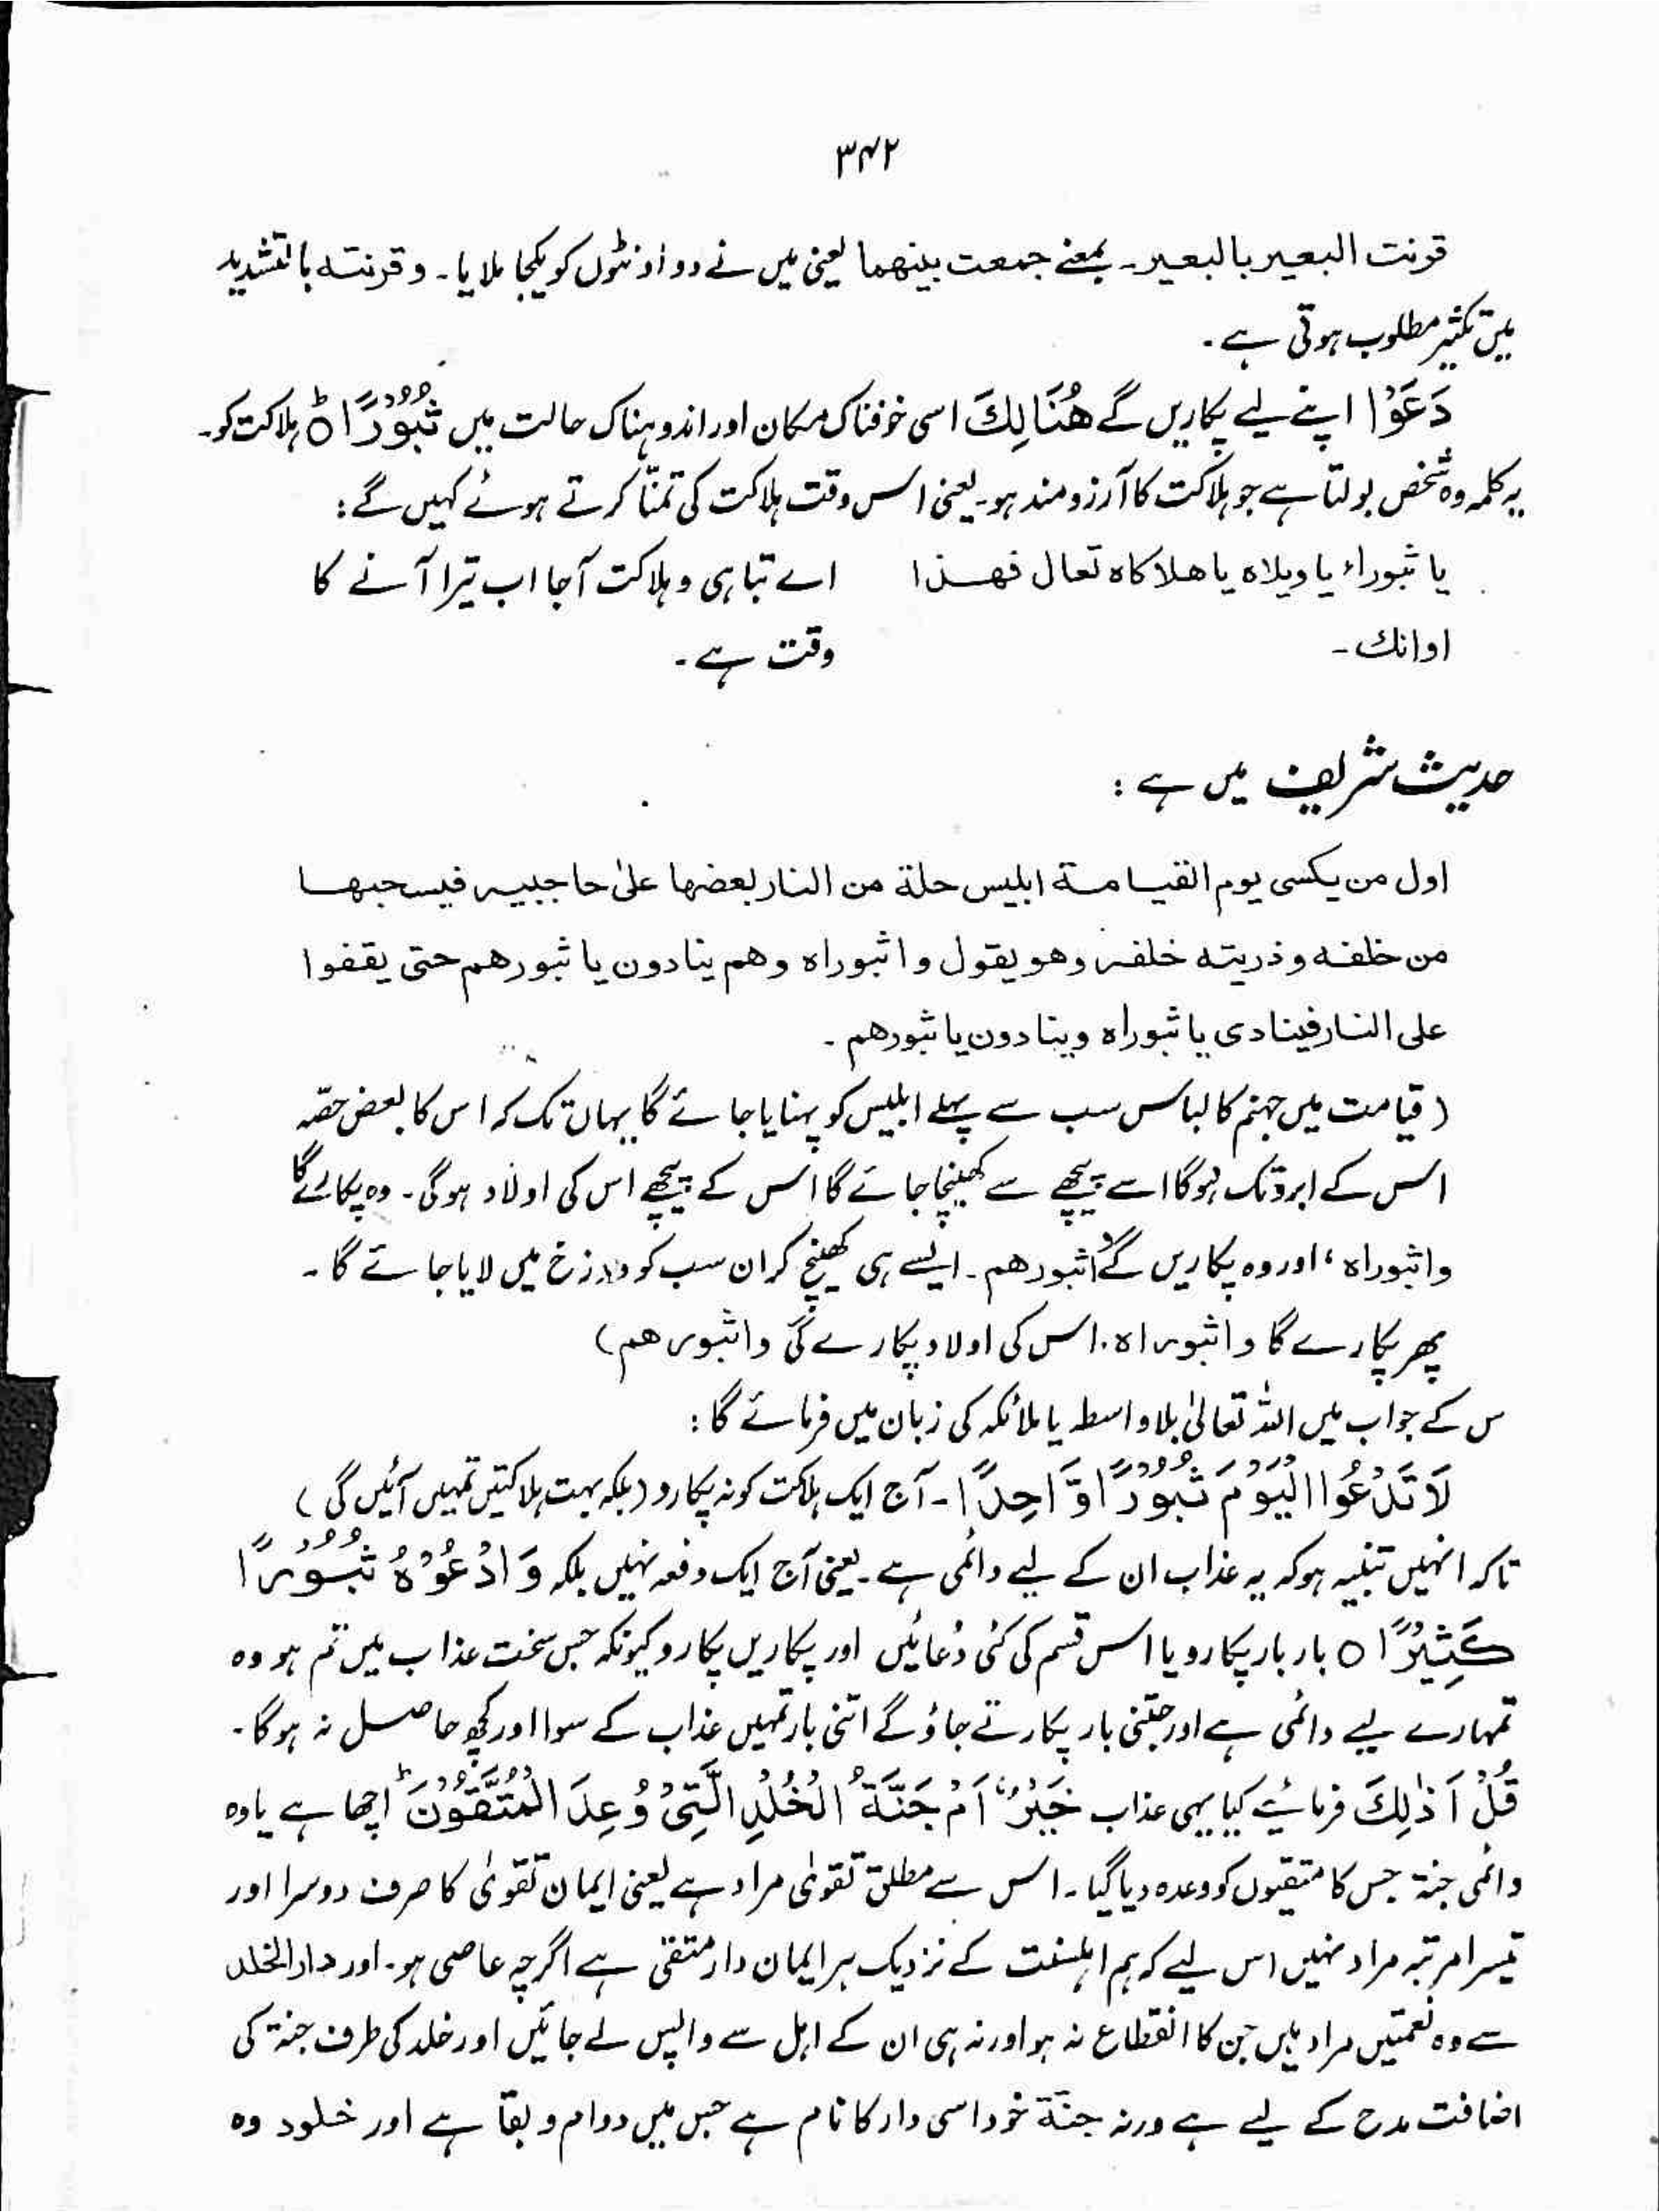 ۳۴۲
قرنت البعیر بالبعیر۔ بمعنے جمعت بینھما یعنی میں نے دو اونٹوں کو یکجا ملایا۔ و قرنتہ بالتشدید
میں تکثیر مطلوب ہوتی ہے۔
دَعَوْا اپنے لیے پکاریں گے هُنَالِكَ اسی خوفناک مکان اور اندوہناک حالت میں ثُبُوْرًا ۝ؕ ہلاکت کو۔
یہ کلمہ وہ شخص بولتا ہے جو ہلاکت کا آرزومند ہو۔ یعنی اس وقت ہلاکت کی تمنّا کرتے ہوئے کہیں گے:
یا ثبوراہ یا ویلاہ یا ھلاکاہ تعال فھذا اے تباہی و ہلاکت آجا اب تیرا آنے کا
اوانك۔ وقت ہے۔
حدیث شریف میں ہے:
اول من یکسی یوم القیامۃ ابلیس حلۃ من النار بعضھا علیٰ حاجبیہ فیسحبھا
من خلفہ و ذریتہ خلفہ وھو یقول واثبوراہ وھم ینادون یا ثبورھم حتی یقفوا
علی النار فینادی یا ثبوراہ وینادون یا ثبورھم۔
(قیامت میں جہنم کا لباس سب سے پہلے ابلیس کو پہنایا جائے گا یہاں تک کہ اس کا بعض حصّہ
اس کے ابرو تک ہوگا اسے پیچھے سے کھینچا جائے گا اس کے پیچھے اس کی اولاد ہوگی۔ وہ پکارے گا
واثبوراہ، اور وہ پکاریں گے واثبورھم۔ ایسے ہی کھینچ کر ان سب کو دوزخ میں لایا جائے گا۔
پھر پکارے گا واثبوراہ۔ اس کی اولاد پکارے گی واثبورھم)
س کے جواب میں اللہ تعالیٰ بلاواسطہ یا ملائکہ کی زبان میں فرمائے گا:
لَا تَدْعُوا الْيَوْمَ ثُبُوْرًا وَّاحِدًا۔ آج ایک ہلاکت کو نہ پکارو (بلکہ بہت ہلاکتیں تمہیں آئیں گی)
تاکہ انہیں تنبیہ ہو کہ یہ عذاب ان کے لیے دائمی ہے۔ یعنی آج ایک دفعہ نہیں بلکہ وَادْعُوْهُ ثُبُوْرًا
كَثِيْرًا ۝ بار بار پکارو یا اس قسم کی کئی دُعائیں اور پکاریں پکارو کیونکہ جس سخت عذاب میں تم ہو وہ
تمہارے لیے دائمی ہے اور جتنی بار پکارتے جاؤ گے اتنی بار تمہیں عذاب کے سوا اور کچھ حاصل نہ ہوگا۔
قُلْ اَذٰلِكَ فرمائیے کیا یہی عذاب خَيْرٌ اَمْ جَنَّةُ الْخُلْدِ الَّتِیْ وُعِدَ الْمُتَّقُوْنَ ؕ اچھا ہے یا وہ
دائمی جنۃ جس کا متقیوں کو وعدہ دیا گیا۔ اس سے مطلق تقویٰ مراد ہے یعنی ایمان تقویٰ کا صرف دوسرا اور
تیسرا مرتبہ مراد نہیں اس لیے کہ ہم اہلسنت کے نزدیک ہر ایمان دار متقی ہے اگرچہ عاصی ہو۔ اور دارالخلد
سے وہ نعمتیں مراد ہیں جن کا انقطاع نہ ہو اور نہ ہی ان کے اہل سے واپس لے جائیں اور خلد کی طرف جنۃ کی
اضافت مدح کے لیے ہے ورنہ جنّۃ خود اسی دار کا نام ہے جس میں دوام و بقا ہے اور خلود وہ